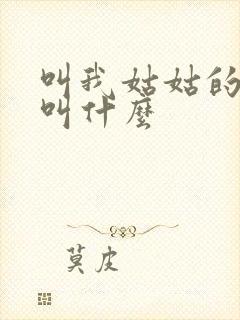 叫我姑姑的
叫什麼
莫皮